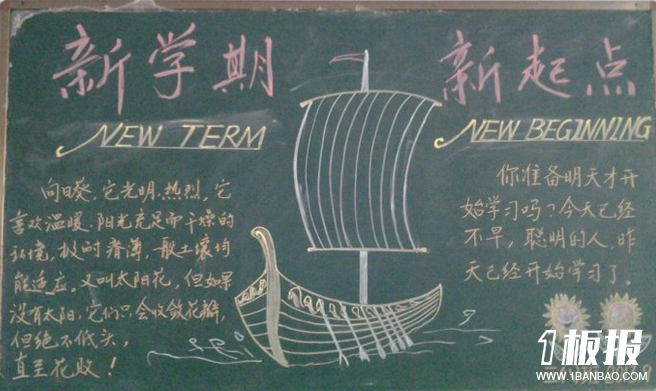 新学期
新起点
NEW TERM
NEW BEGINNING
向日葵,它光明,热烈,它
喜欢温暖、阳光充足而干燥的
环境,极耐瘠薄,一般土壤均
能适应,又叫太阳花,但如果
没有太阳,它们只会收敛花瓣,
但绝不低头,
直至花败!
你准备明天才开
始学习吗?今天已经
不早,聪明的人,昨
天已经开始学习了。
1板报
WWW.1BANBAO.COM